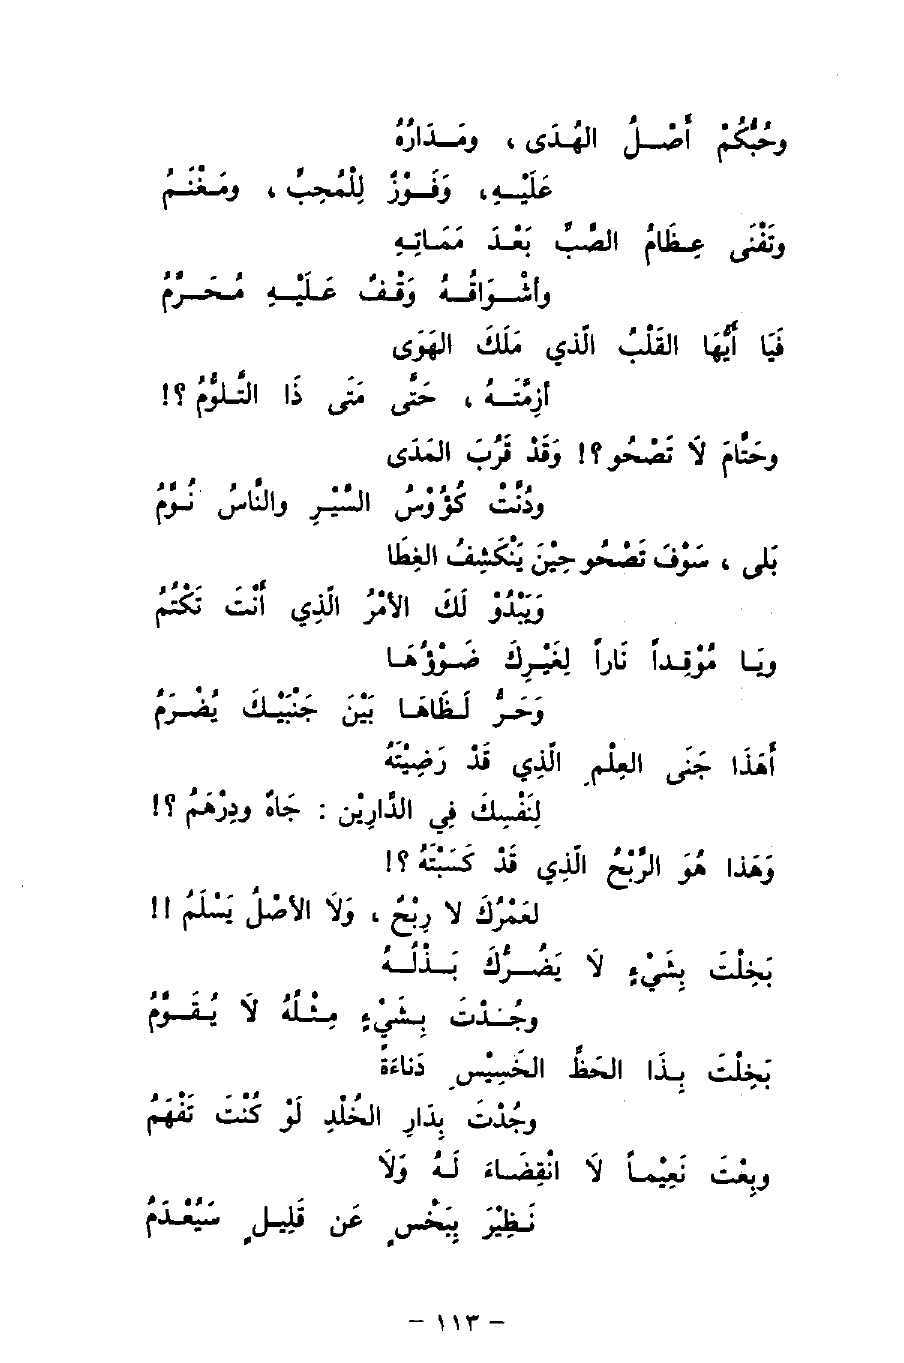 وحُبُّكُمْ أَصْـلُ الهُـدَى ، ومَـدَارُهُ
عَلَيْـهِ، وَفَـوْزٌ لِلْمُحِبِّ ، ومَـغْنَـمُ
وتَفْنَى عِـظَامُ الصَّبِّ بَعْـدَ مَمَـاتِـهِ
وأشْـوَاقُـهُ وَقْـفٌ عَـلَيْـهِ مُـحَـرَّمُ
فَيَا أَيُّهَا القَلْبُ الّذي مَلَكَ الهَوَى
أزِمَّتَـهُ ، حَتَّى مَتَى ذَا التَّـلـوُّمُ ؟!
وحَتَّامَ لاَ تَصْحُو ؟! وَقَدْ قَرُبَ المَدَى
ودُنَّتْ كُؤُوْسُ السَّيْـرِ والنَّاسُ نُـوَّمُ
بَلى ، سَوْفَ تَصْحُو حِيْنَ يَنْكَشِفُ الغِطَا
وَيَبْدُوْ لَكَ الأمْرُ الَّذِي أَنْتَ تَكْتُمُ
ويَـا مُوْقِـداً نَاراً لِغَيْـرِكَ ضَـوْؤُهَـا
وَحَـرُّ لَـظَاهَـا بَيْنَ جَنْبَيْـكَ يُضْـرَمُ
أَهَذَا جَنَى العِلْمِ الَّذِي قَدْ رَضِيْتَهُ
لِنَفْسِكَ فِي الدَّارِيْنِ : جَاهٌ ودِرْهَمُ ؟!
وَهَذا هُوَ الرِّبْحُ الَّذِي قَدْ كَسَبْتَهُ ؟!
لعَمْرُكَ لا رِبْحٌ ، وَلاَ الأصْلُ يَسْلَمُ !!
بَخِلْتَ بِشَيْءٍ لاَ يَضُـرُّكَ بَـذْلُـهُ
وجُـدْتَ بِـشَيْءٍ مِـثْـلُهُ لاَ يُـقَـوَّمُ
بَخِلْتَ بِـذَا الحَظِّ الخَسِيْسِ دَناءَةً
وجُدْتَ بِدَارِ الخُلْدِ لَوْ كُنْتَ تَفْهَمُ
وبِعْتَ نَعِيْمـاً لاَ انْقِضَـاءَ لَـهُ وَلاَ
نَـظِيْرَ بِبَخْسٍ عَن قَلِيـلٍ سَيُعْـدَمُ
– ١١٣ –